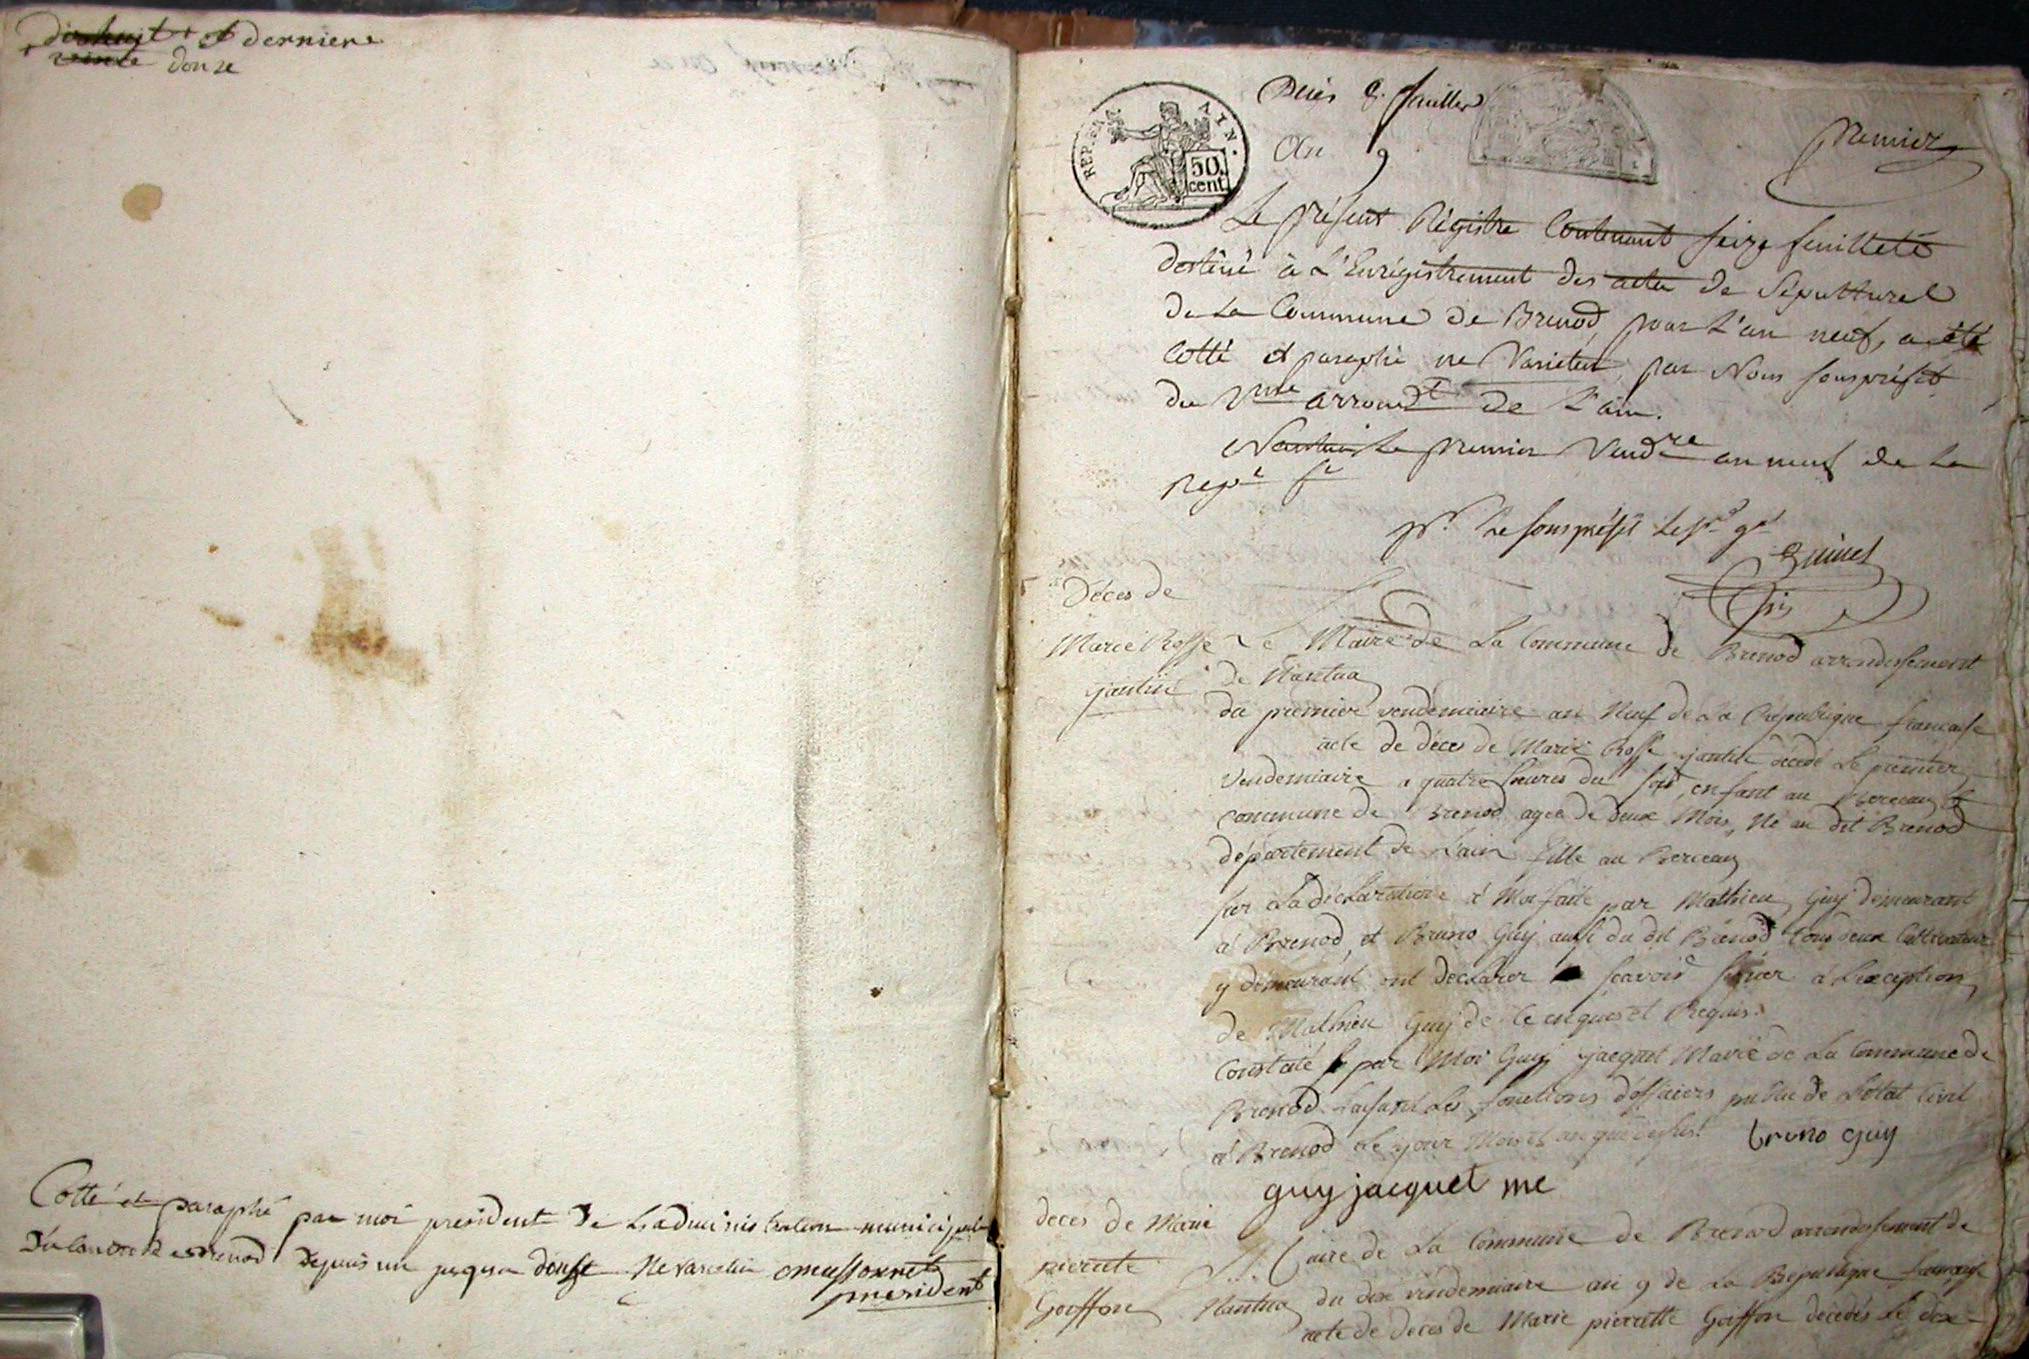 dixhuit et derniere
vinte donze
Cotté et paraphé par moi president de Ladministration municipale
du canton de Brenod depuis un jusqua donse Ne varietur
president
REP. FRA. AIN.
50.
cent
Décès 8. feuillet
An 9
premier
Le présent Régistre Contenant seize feuilletté
destiné à L'Enrégistrement des actes de Sépulturel
de La Commune de Brenod pour L'an neuf, a été
Cotté et paraphé ne Varietur, par Nous souspréfet
du Vme arrondt de L'ain.
Nantua Le premier Vendre an neuf de La
Repe fe
pr. Le souspréfet
Décès de
Marie Rosse
jantin
Le Maire de La Commune de Brenod arrondissement
de Nantua
du premier vendemiaire an Neuf de La République francaise
acte de décès de Marie Rosse jantin décédé Le premier
Vendemiaire a quatre heures du soir enfant au Berceau
commune de Brenod agée de deux Mois, Né au dit Brenod
département de Lain fille au Berceau
sur La déclaration à Moi faite par Mathieu Guy demeurant
à Brenod et Bruno Guy aussi du dit Brenod tous deux Cultivateur
y demeurant ont declarer scavoir signer à Lexception
de Mathieu Guy de ce enquest Requis
Constaté par Moi Guy jacquet Maire de La Commune de
Brenod faisant Les fonctions d'officiers public de Letat Civil
à Brenod Le jour Mois et an que dessus. bruno guy
guy jacquet me
deces de Marie
pierrette
Goiffon
Maire de La Commune de Brenod arrondissement de
Nantua du dix vendemiaire an 9 de La Republique francaise
acte de deces de Marie pierrette Goiffon decedés Le dix-